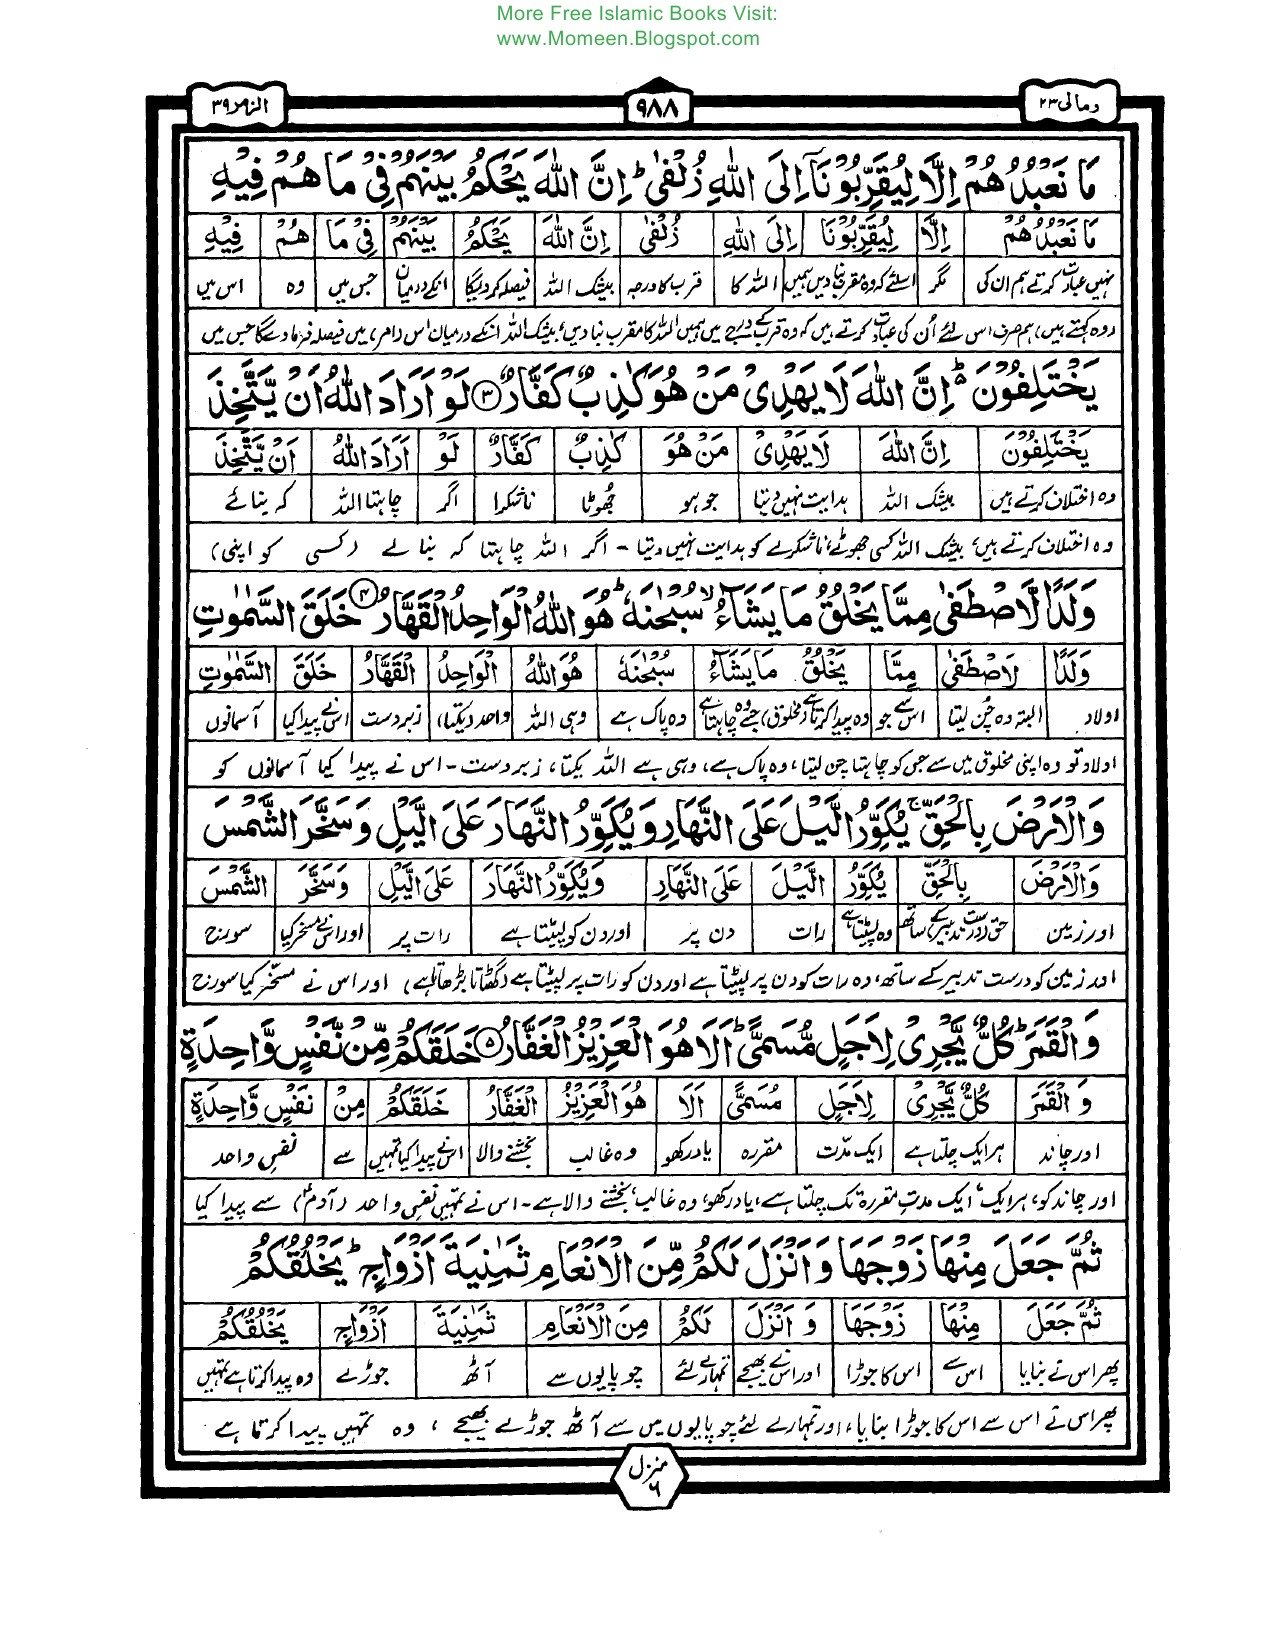 More Free Islamic Books Visit:
www.Momeen.Blogspot.com
ومالی ۲۳
۹۸۸
الزمر ۳۹
مَا نَعْبُدُهُمْ اِلَّا لِيُقَرِّبُوْنَاۤ اِلَى اللّٰهِ زُلْفٰى ؕ اِنَّ اللّٰهَ يَحْكُمُ بَيْنَهُمْ فِيْ مَا هُمْ فِيْهِ
مَا نَعْبُدُهُمْ اِلَّا لِيُقَرِّبُوْنَا اِلَى اللّٰهِ زُلْفٰى اِنَّ اللّٰهَ يَحْكُمُ بَيْنَهُمْ فِيْ مَا هُمْ فِيْهِ
نہیں عبادت کرتے ہم ان کی مگر اسلئے کہ وہ مقرب بنا دیں ہمیں اللہ کا قرب کا درجہ بیشک اللہ فیصلہ کردیگا انکے درمیان جس میں وہ اس میں
(وہ کہتے ہیں) ہم صرف اس لئے اُن کی عبادت کرتے ہیں کہ وہ قرب کے درجے میں ہمیں اللہ کا مقرب بنا دیں، بیشک اللہ انکے درمیان اس (امر) میں فیصلہ فرما دے گا جس میں
يَخْتَلِفُوْنَ ؕ اِنَّ اللّٰهَ لَا يَهْدِيْ مَنْ هُوَ كٰذِبٌ كَفَّارٌ ۳ لَوْ اَرَادَ اللّٰهُ اَنْ يَّتَّخِذَ
يَخْتَلِفُوْنَ اِنَّ اللّٰهَ لَا يَهْدِيْ مَنْ هُوَ كٰذِبٌ كَفَّارٌ لَوْ اَرَادَ اللّٰهُ اَنْ يَّتَّخِذَ
وہ اختلاف کرتے ہیں بیشک اللہ ہدایت نہیں دیتا جو ہو جھوٹا ناشکرا اگر چاہتا اللہ کہ بنائے
وہ اختلاف کرتے ہیں، بیشک اللہ کسی جھوٹے، ناشکرے کو ہدایت نہیں دیتا - اگر اللہ چاہتا کہ بنا لے (کسی کو اپنی)
وَلَدًا لَّاصْطَفٰى مِمَّا يَخْلُقُ مَا يَشَآءُ ۙ سُبْحٰنَهٗ ؕ هُوَ اللّٰهُ الْوَاحِدُ الْقَهَّارُ ۴ خَلَقَ السَّمٰوٰتِ
وَلَدًا لَاصْطَفٰى مِمَّا يَخْلُقُ مَا يَشَآءُ سُبْحٰنَهٗ هُوَ اللّٰهُ الْوَاحِدُ الْقَهَّارُ خَلَقَ السَّمٰوٰتِ
اولاد البتہ وہ چُن لیتا اس سے جو وہ پیدا کرتا ہے (مخلوق) جسے وہ چاہتا ہے وہ پاک ہے وہی اللہ واحد (یکتا) زبردست اس نے پیدا کیا آسمانوں
اولاد تو وہ اپنی مخلوق میں سے جس کو چاہتا چن لیتا، وہ پاک ہے، وہی ہے اللہ یکتا، زبردست - اس نے پیدا کیا آسمانوں کو
وَالْاَرْضَ بِالْحَقِّ ۚ يُكَوِّرُ الَّيْلَ عَلَى النَّهَارِ وَيُكَوِّرُ النَّهَارَ عَلَى الَّيْلِ وَسَخَّرَ الشَّمْسَ
وَالْاَرْضَ بِالْحَقِّ يُكَوِّرُ الَّيْلَ عَلَى النَّهَارِ وَيُكَوِّرُ النَّهَارَ عَلَى الَّيْلِ وَسَخَّرَ الشَّمْسَ
اور زمین حق (درست تدبیر) کے ساتھ وہ لپیٹتا ہے رات دن پر اور دن کو لپیٹتا ہے رات پر اور اس نے مسخر کیا سورج
اور زمین کو درست تدبیر کے ساتھ، وہ رات کو دن پر لپیٹتا ہے اور دن کو رات پر لپیٹتا ہے (گھٹاتا بڑھاتا ہے) اور اس نے مسخّر کیا سورج
وَالْقَمَرَ ؕ كُلٌّ يَّجْرِيْ لِاَجَلٍ مُّسَمًّى ؕ اَلَا هُوَ الْعَزِيْزُ الْغَفَّارُ ۵ خَلَقَكُمْ مِّنْ نَّفْسٍ وَّاحِدَةٍ
وَالْقَمَرَ كُلٌّ يَّجْرِيْ لِاَجَلٍ مُسَمًّى اَلَا هُوَ الْعَزِيْزُ الْغَفَّارُ خَلَقَكُمْ مِنْ نَفْسٍ وَّاحِدَةٍ
اور چاند ہر ایک چلتا ہے ایک مدّت مقررہ یاد رکھو وہ غالب بخشنے والا اس نے پیدا کیا تمہیں سے نفس واحد
اور چاند کو، ہر ایک، ایک مدت مقررہ تک چلتا ہے، یاد رکھو، وہ غالب، بخشنے والا ہے - اس نے تمہیں نفس واحد (آدمؑ) سے پیدا کیا
ثُمَّ جَعَلَ مِنْهَا زَوْجَهَا وَاَنْزَلَ لَكُمْ مِّنَ الْاَنْعَامِ ثَمٰنِيَةَ اَزْوَاجٍ ؕ يَخْلُقُكُمْ
ثُمَّ جَعَلَ مِنْهَا زَوْجَهَا وَاَنْزَلَ لَكُمْ مِنَ الْاَنْعَامِ ثَمٰنِيَةَ اَزْوَاجٍ يَخْلُقُكُمْ
پھر اس نے بنایا اس سے اس کا جوڑا اور اس نے بھیجے تمہارے لئے چوپایوں سے آٹھ جوڑے وہ پیدا کرتا ہے تمہیں
پھر اس نے اس سے اس کا جوڑا بنایا، اور تمہارے لئے چوپایوں میں سے آٹھ جوڑے بھیجے، وہ تمہیں پیدا کرتا ہے
منزل ۶